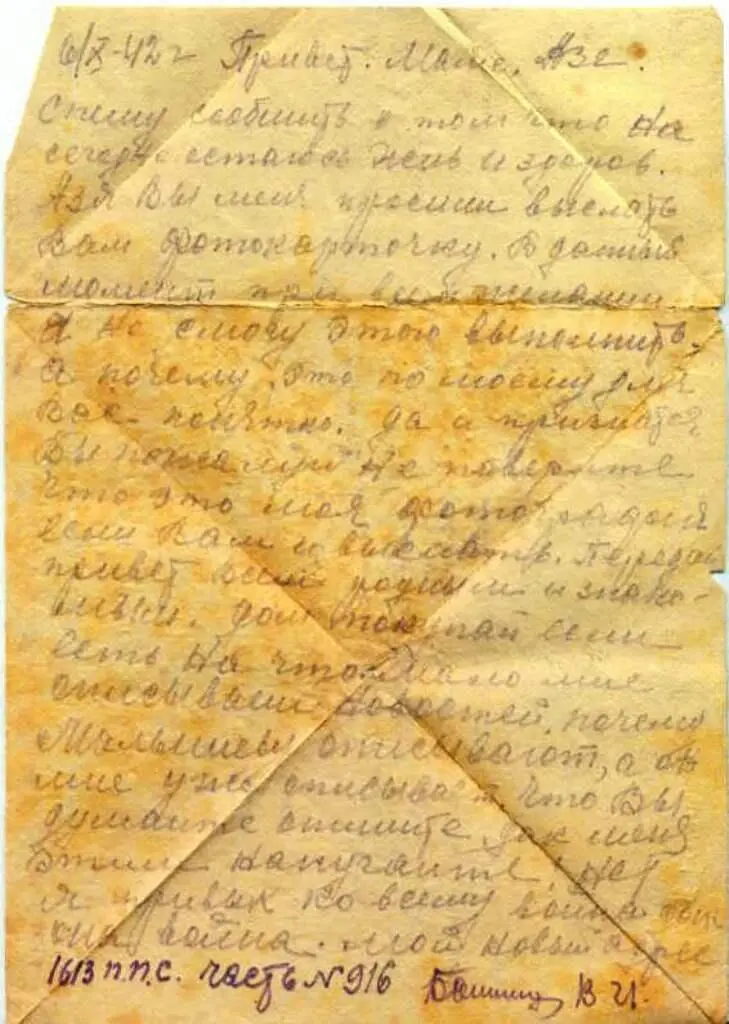 6/X-42 г Привет. Маме, Азе.
Спешу сообщить о том что на
сегодня остаюсь жив и здоров.
Азя Вы меня просили выслать
Вам фотокарточку. В данный
момент при всем желании
Я не смогу этого выполнить.
А почему. Это по моему для
Вас понятно. Да и признатся
Вы пожалуй не поверите
что это моя фотография
если Вам и выслать. Передай
привет всем родным и знако-
мым. Дом покупай если
есть на что. Мало мне
описываеш новостей, почему
описывают, а он
мне уже описывает. Что Вы
думаите опишите, так меня
этим напугаите, нет
Я привык ко всему война
война. Мой новый адрес
1613 п.п.с. часть № 916 В И.